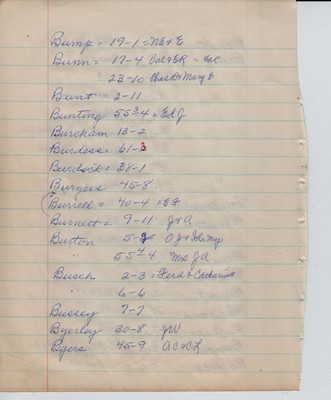 Bump = 19-1 = NE & E
Bunn = 17-4 Val & ER - Hal
23-10 Chas D & Mary E
Bunt = 2-11
Bunting 55 3/4 = Ed J
Burcham 13-2
Burdess 61-3
Burdock = 38-1
Burgess 45-8
Burrell = 40-4 =
Burnett = 9-11 J & A
Button 5- O J & Ida May
" 55 Mrs J A
Busch 2-3 = Ferd & Catharina
" 6-6
Bussey 7-7
Byerley 30-8 JW
Byers 45-9 AC & CL